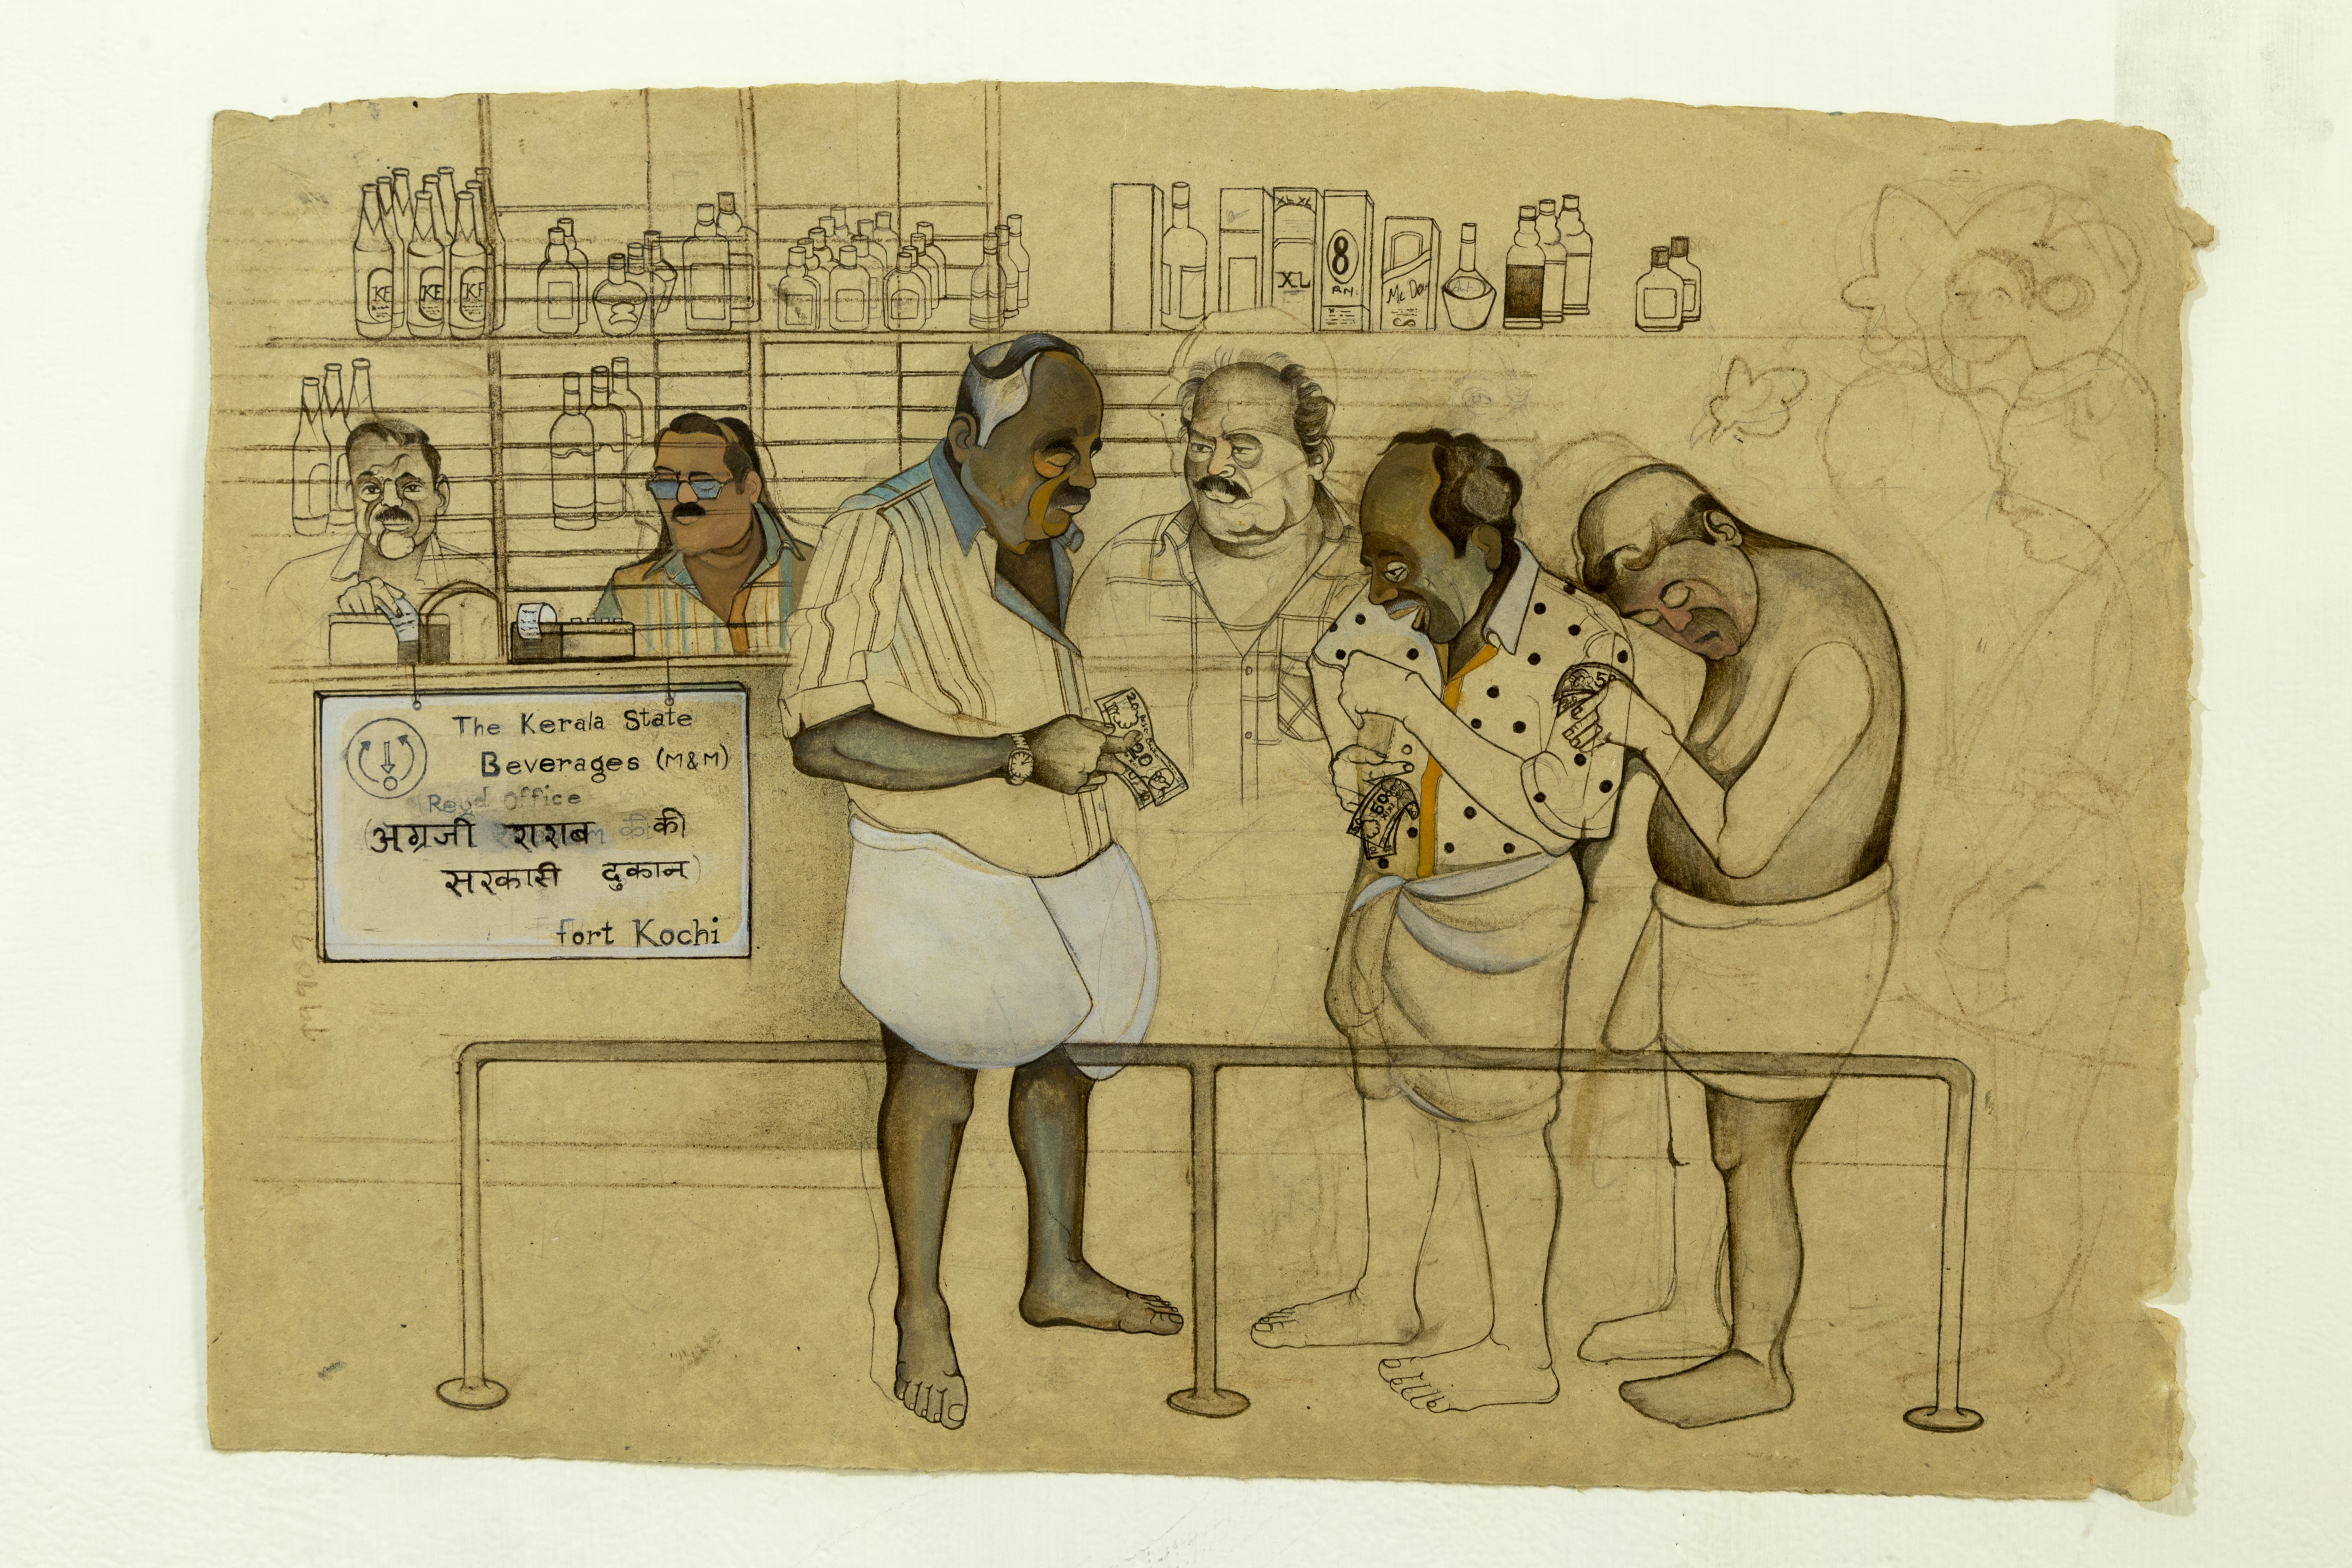 KF KF KF
XL XL
XL
8
RN.
Mc Dow
The Kerala State
Beverages (M&M)
Regd Office
(अग्रजी शराब की की
सरकारी दुकान)
fort Kochi
20
50
5